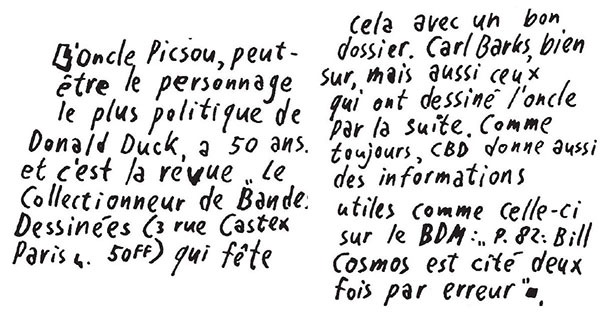 L'oncle Picsou, peut-
être le personnage
le plus politique de
Donald Duck, a 50 ans.
et c'est la revue „ Le
Collectionneur de Bande.
Dessinées (3 rue Castex
Paris 4. 50FF) qui fête
cela avec un bon
dossier. Carl Barks, bien
sur, mais aussi ceux
qui ont dessiné l'oncle
par la suite. Comme
toujours, CBD donne aussi
des informations
utiles comme celle-ci
sur le BDM: „ P. 82: Bill
Cosmos est cité deux
fois par erreur".